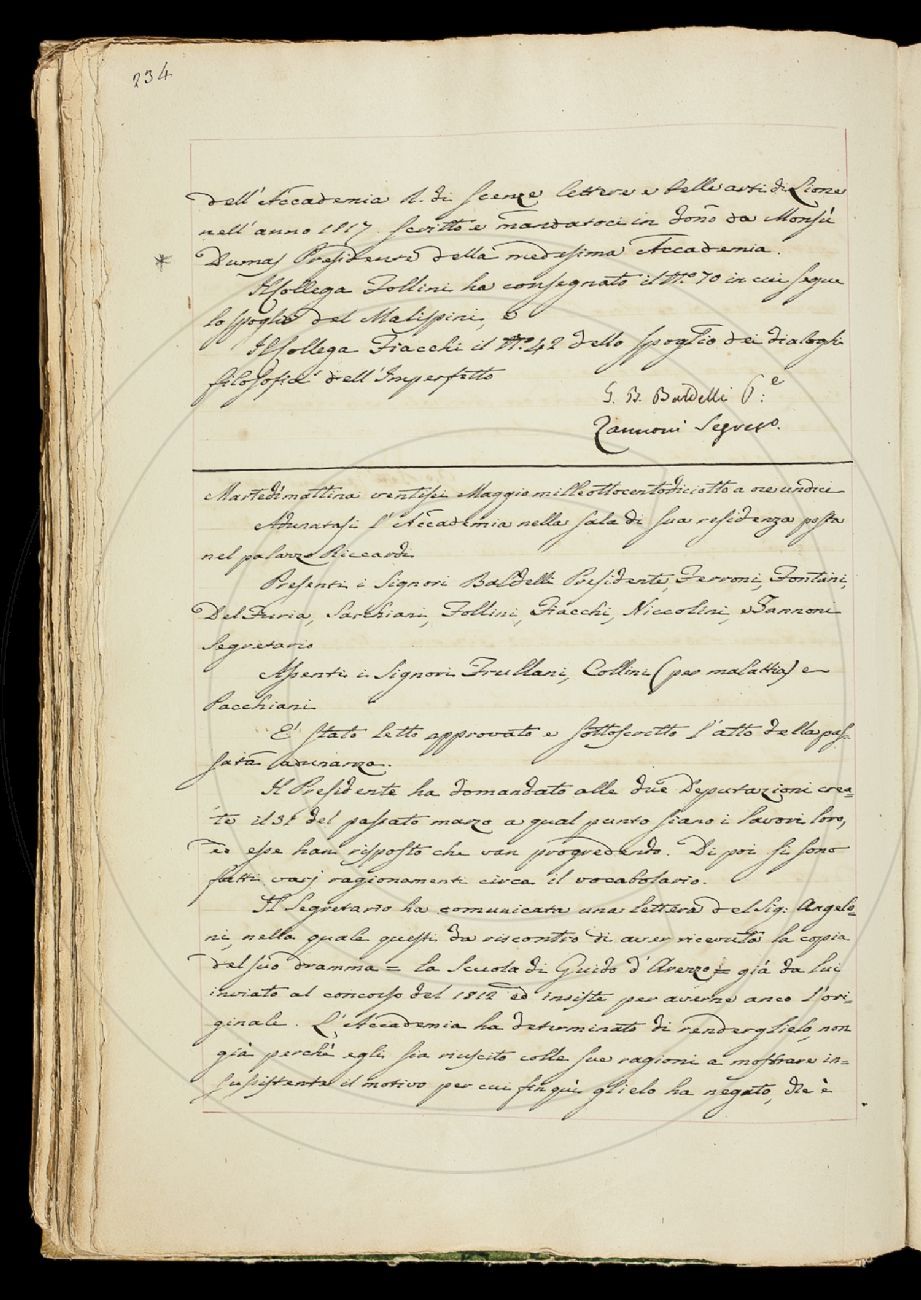 234
dell'Accademia R. di Scenze lettere e belle arti di Lione
nell'anno 1817. scritto e mandatoci in dono da Monsù
Dumas Presidente della medesima Accademia.
*
Il Collega Follini ha consegnato il N.o 70 in cui segue
lo spoglio del Malispini, e
Il Collega Fiacchi il N.o 42 dello spoglio dei dialoghi
filosofici dell'Imperfetto
G. B. Baldelli P.e
Zannoni Segret.o
Martedì mattina ventisei Maggio mille ottocentodiciotto a ore undici
Adunatasi l'Accademia nella sala di sua residenza posta
nel palazzo Riccardi
Presenti i Signori Baldelli Presidente, Ferroni, Fontani,
Del Furia, Sarchiani, Follini, Fiacchi, Niccolini, e Zannoni
Segretario
Assenti i Signori Frullani, Collini (per malattia) e
Pacchiani
E' stato letto approvato e sottoscritto l'atto della pas=
sata adunanza.
Il Presidente ha domandato alle due Deputazioni crea=
te il 31 del passato marzo a qual punto siano i lavori loro,
ed esse han risposto che van progredendo. Di poi si sono
fatti varj ragionamenti circa il vocabolario.
Il Segretario ha comunicata una lettera del Sig. Angelo=
ni, nella quale questi dà riscontro di aver ricevuta la copia
del suo dramma = la Scuola di Guido d'Arezzo = già da lui
inviato al concorso del 1812 ed insiste per averne anco l'ori=
ginale. L'Accademia ha determinato di renderglielo, non
già perchè egli sia riuscito colle sue ragioni a mostrare in=
sussistente il motivo per cui fin quì glielo ha negato, che è